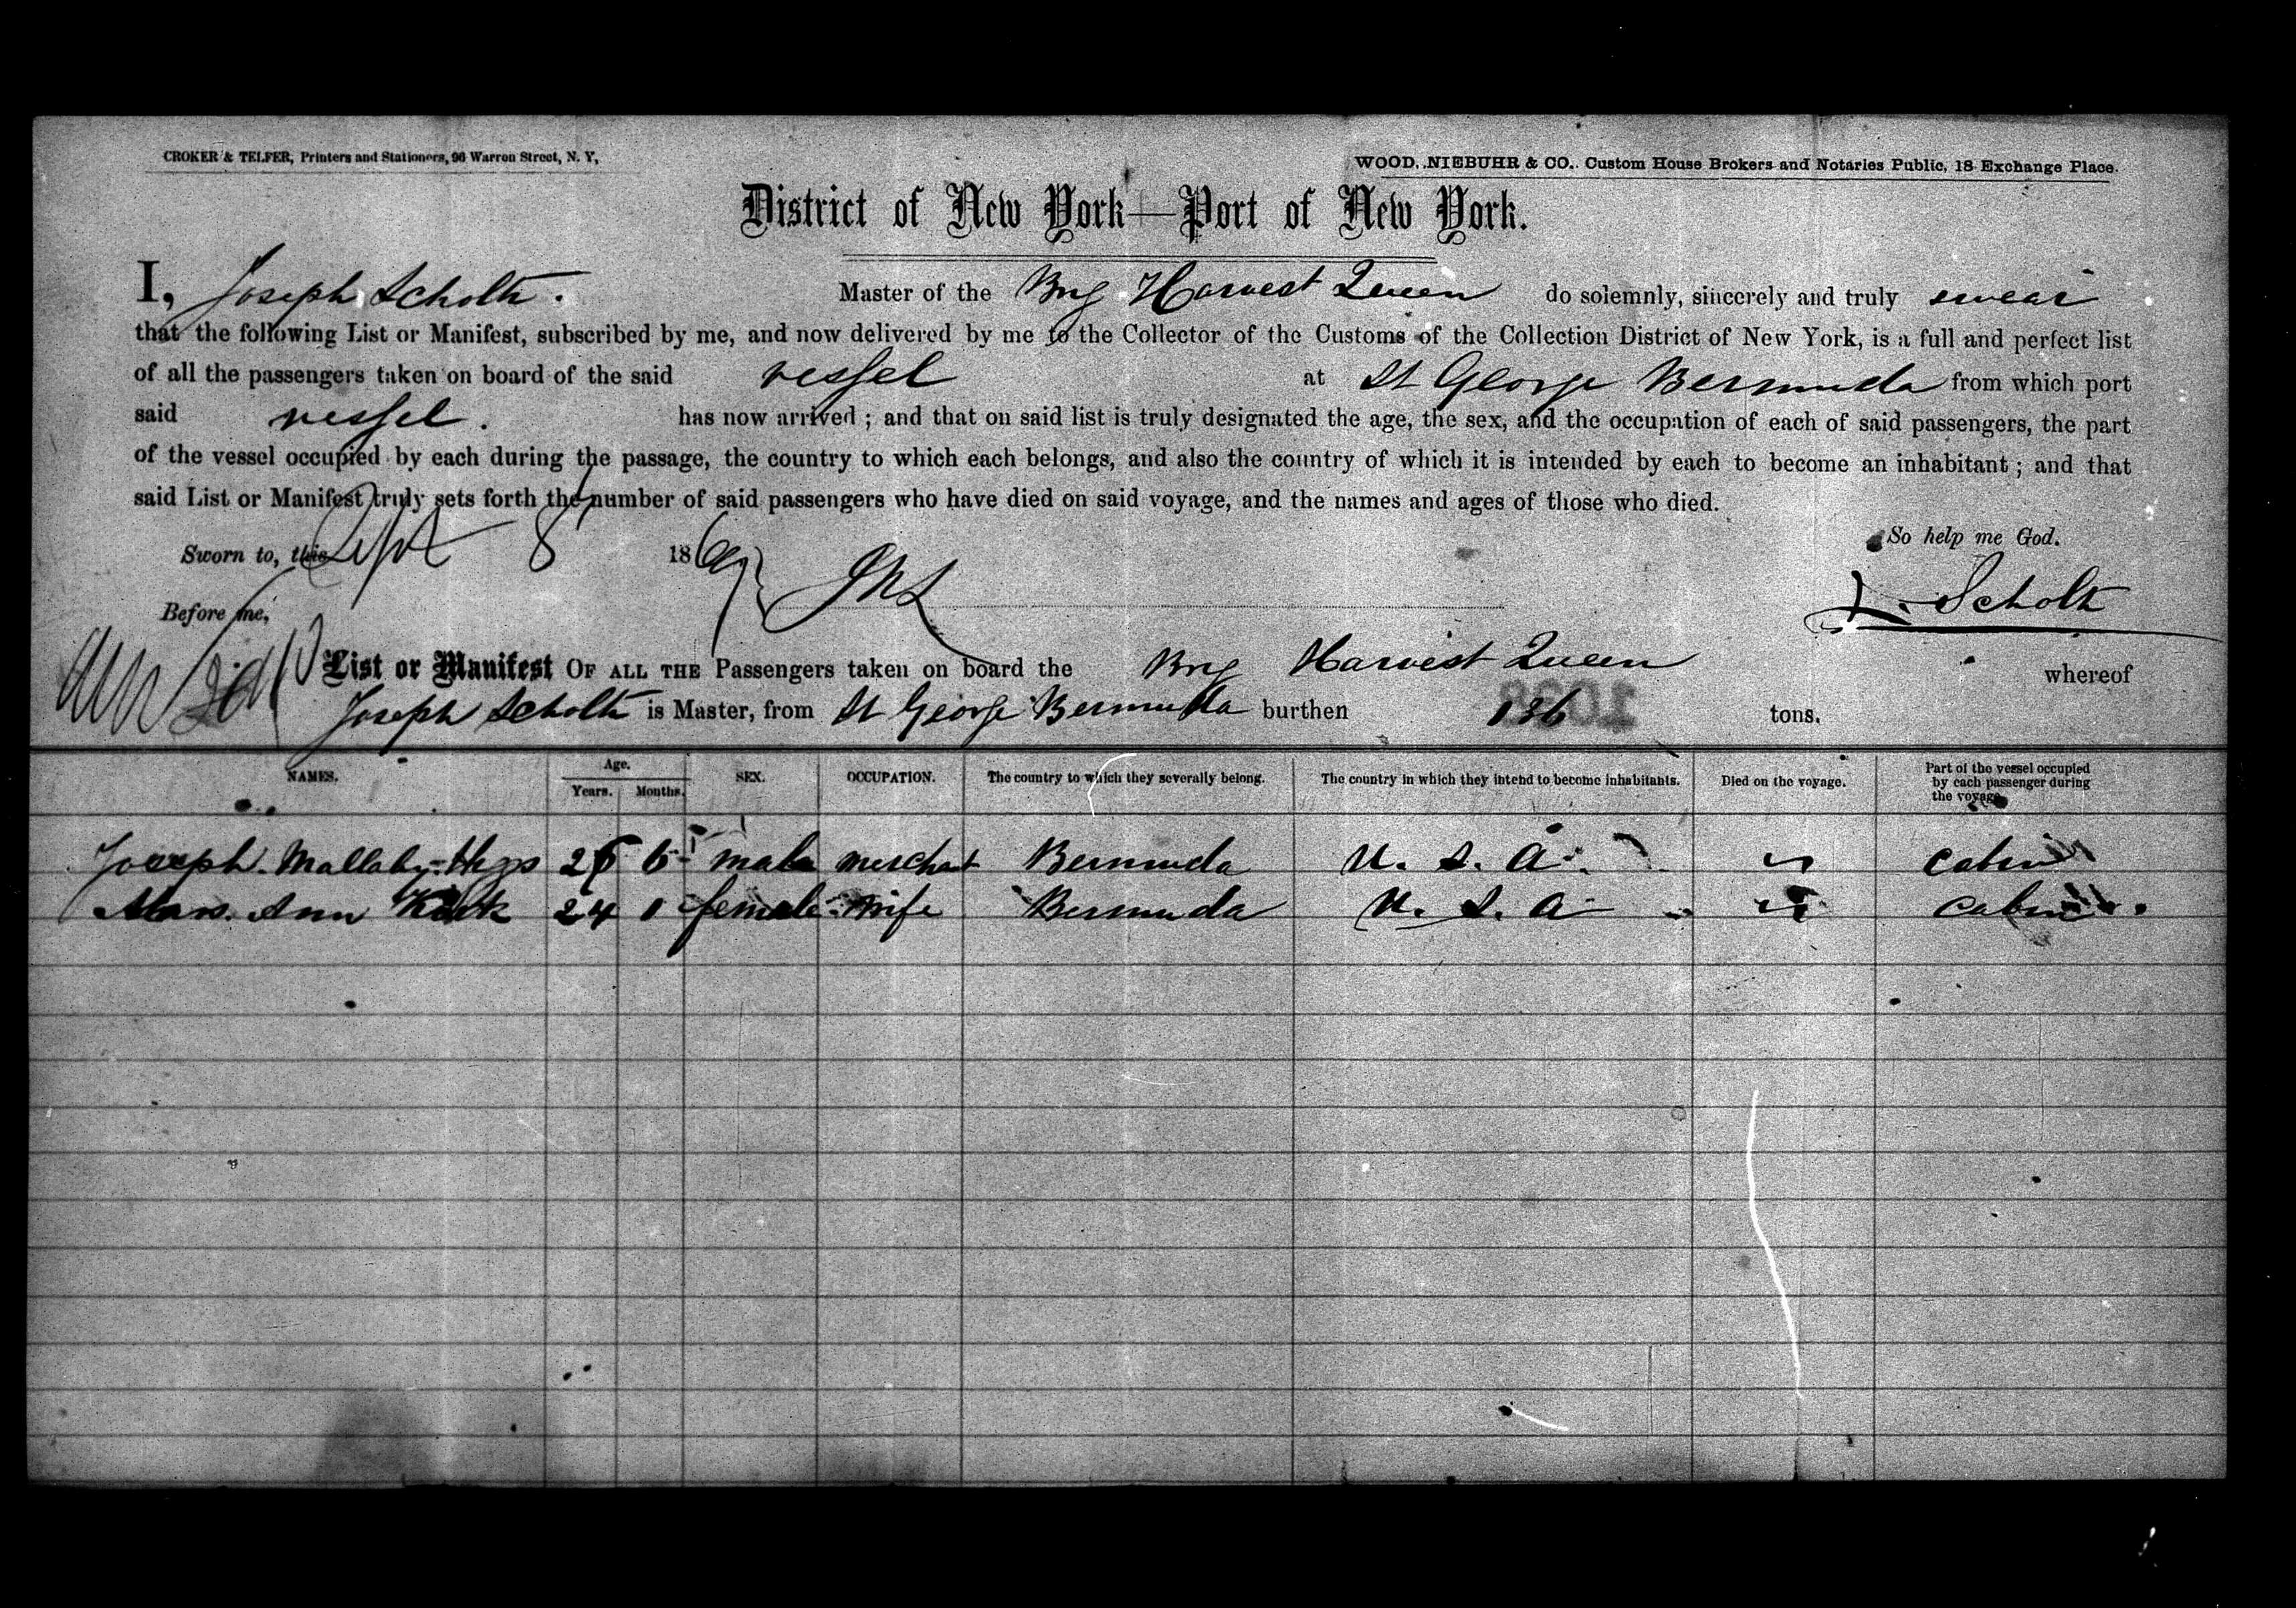 CROKER & TELFER, Printers and Stationers, 96 Warren Street, N. Y,
WOOD, NIEBUHR & CO., Custom House Brokers and Notaries Public, 18 Exchange Place.
District of New York—Port of New York.
I, Joseph Scholtz. Master of the Brig Harvest Queen do solemnly, sincerely and truly swear
that the following List or Manifest, subscribed by me, and now delivered by me to the Collector of the Customs of the Collection District of New York, is a full and perfect list
of all the passengers taken on board of the said vessel at St George Bermuda from which port
said vessel. has now arrived ; and that on said list is truly designated the age, the sex, and the occupation of each of said passengers, the part
of the vessel occupied by each during the passage, the country to which each belongs, and also the country of which it is intended by each to become an inhabitant ; and that
said List or Manifest truly sets forth the number of said passengers who have died on said voyage, and the names and ages of those who died.
So help me God.
Sworn to, this Sept 8 1869
J. Scholtz
Before me,
List or Manifest OF ALL THE Passengers taken on board the Brig Harvest Queen whereof
Joseph Scholtz is Master, from St George Bermuda burthen 136 tons.
NAMES. Age. Years. Months. SEX. OCCUPATION. The country to which they severally belong. The country in which they intend to become inhabitants. Died on the voyage. Part of the vessel occupied by each passenger during the voyage.
Joseph Mallaby 6 male merchat Bermuda U. S. A. cabin
Ann 24 female wife Bermuda U. S. A cabin